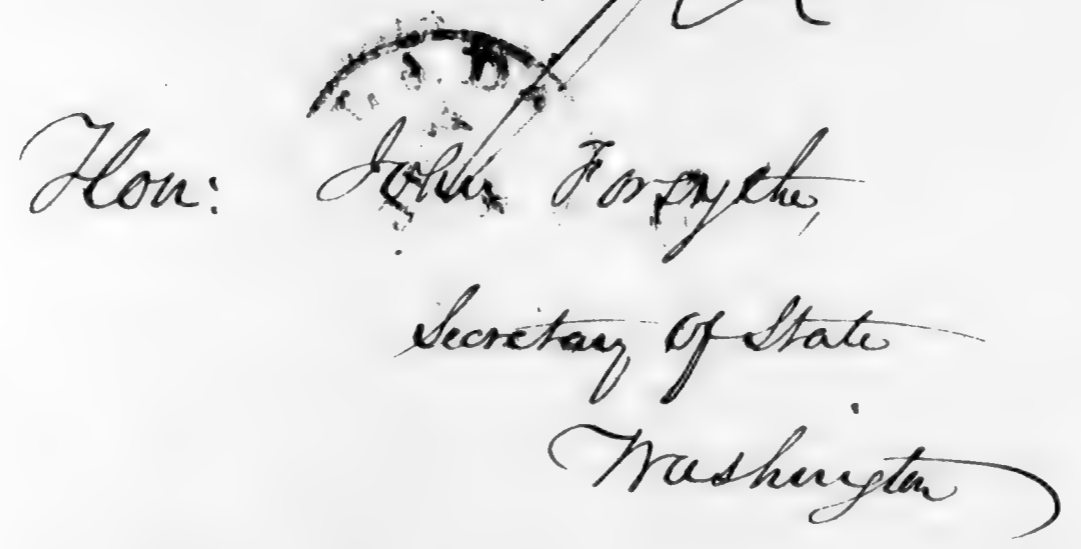 Hon: John Forsythe,
Secretary of State
Washington